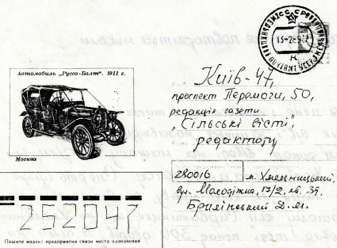 Автомобиль „Руссо-Балт". 1911 г.
Москва
Київ-47,
проспект Перемоги, 50,
редакція газети
„Сільські вісті",
редактору
280016 м. Хмельницький,
вул. Молодіжна, 17/2, кв. 39,
252047
Пишите индекс предприятия связи места назначения